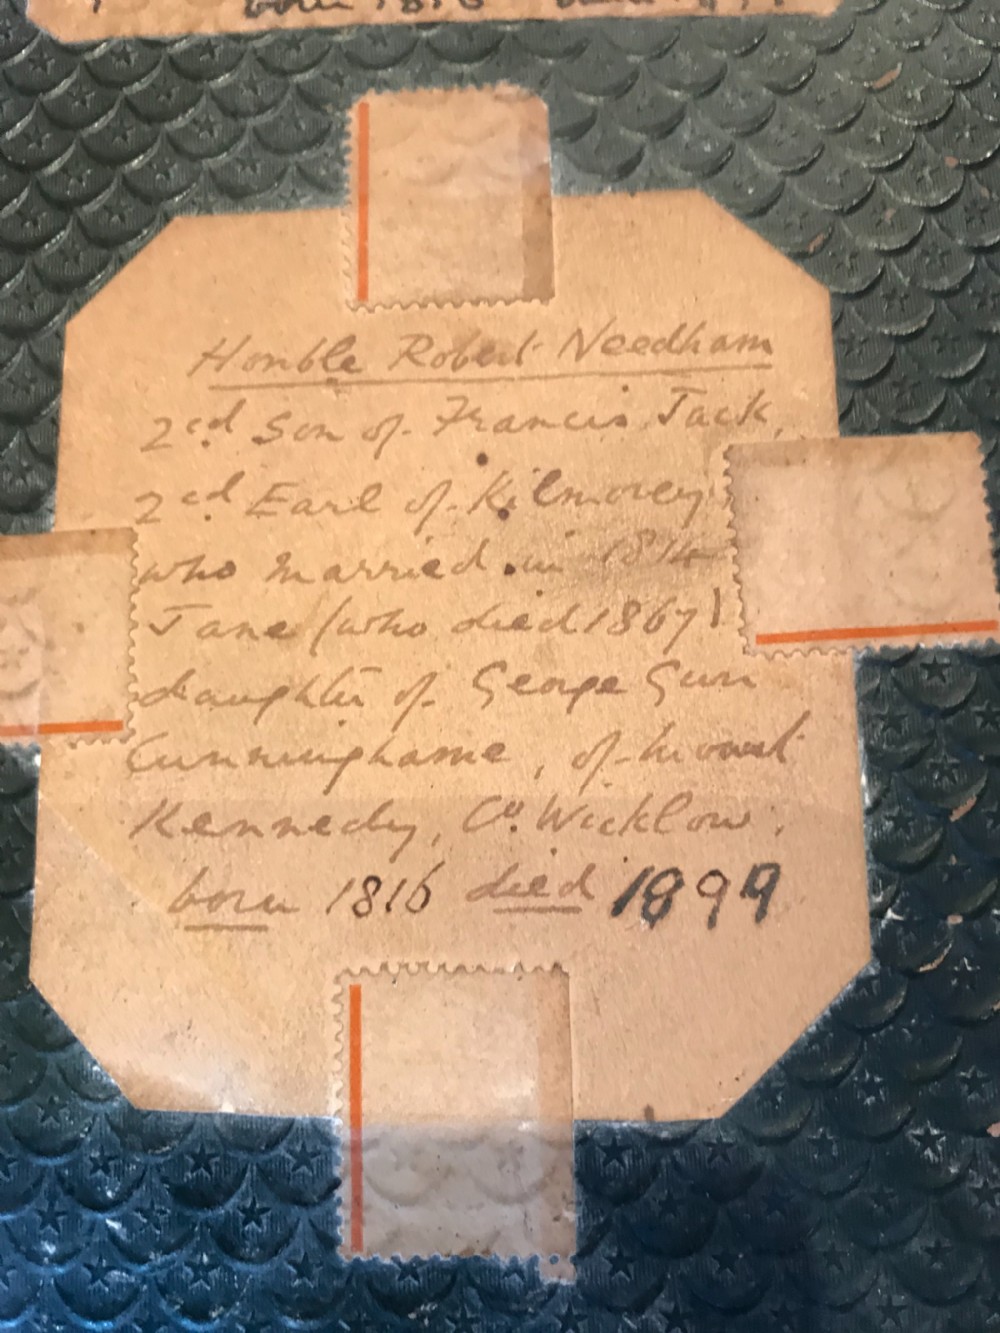 born 1816
Honble Robert Needham
2cd Son of Francis Jack,
2cd Earl of Kilmorey
who married in 1814
Jane (who died 1867)
daughter of George Gun
Cunninghame, of Mount
Kennedy, Co. Wicklow.
born 1816 died 1899